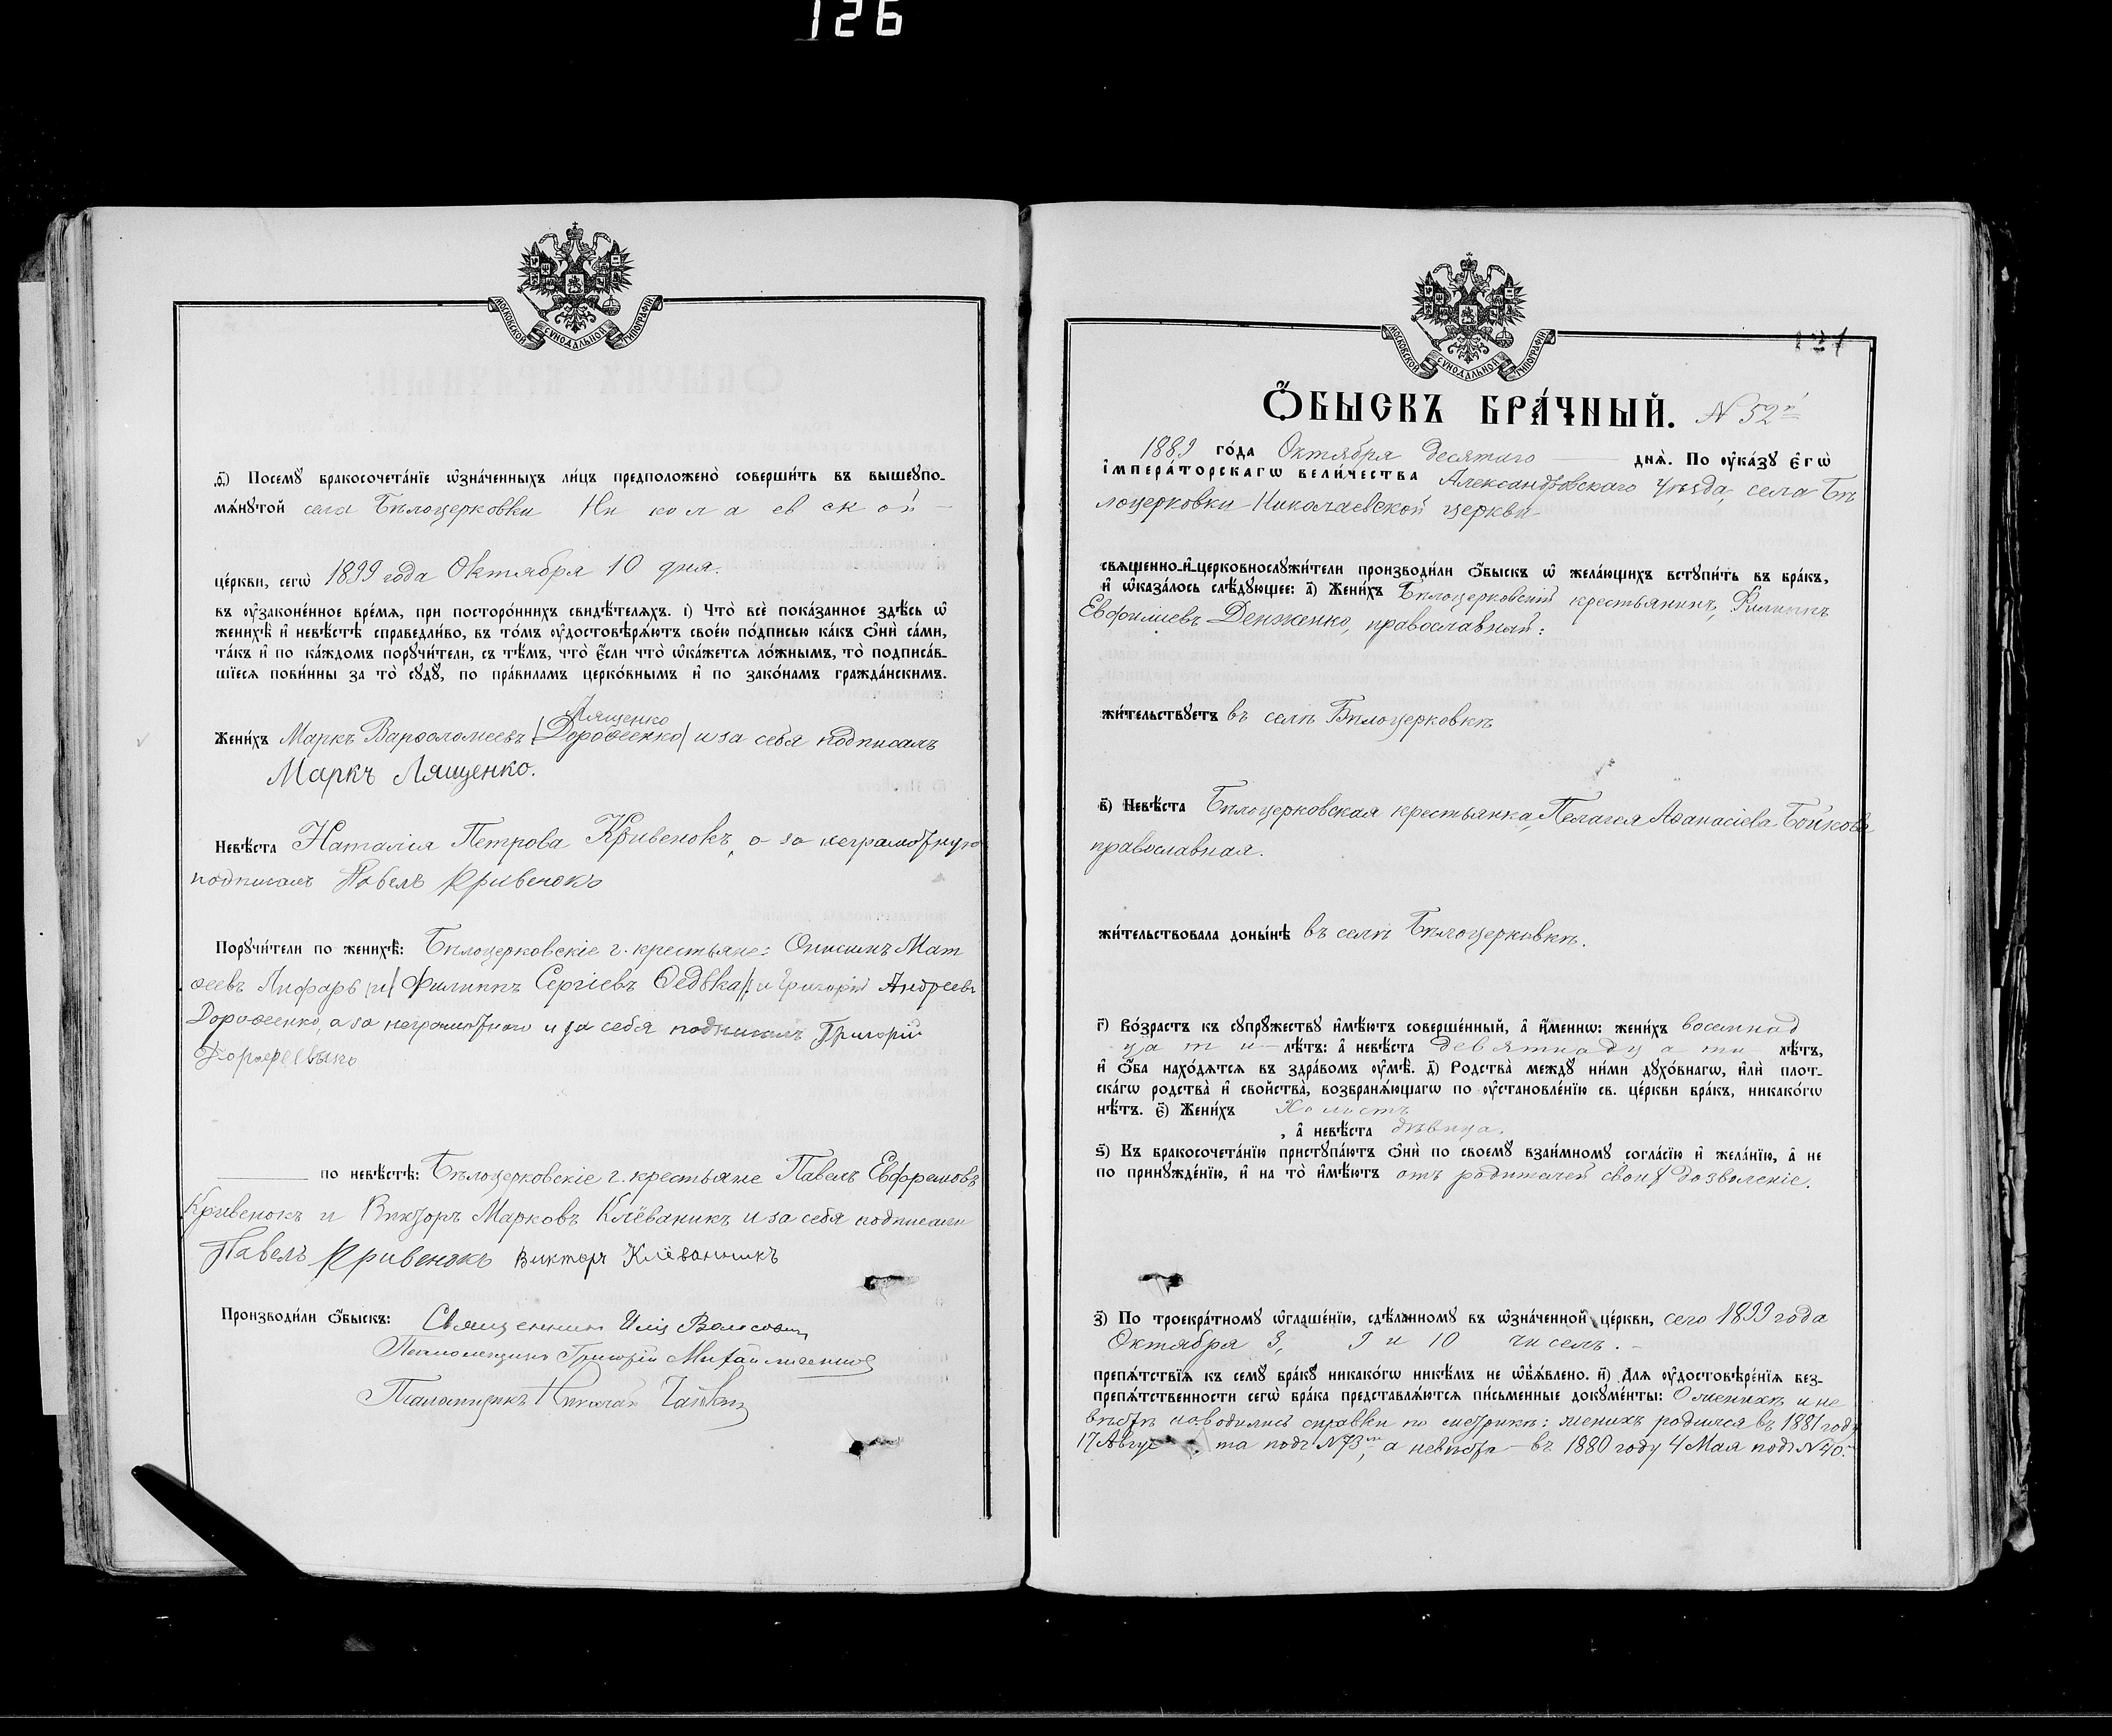 126
МОСКОВСКОЙ СѴНОДАЛЬНОЙ ТИПОГРАФІИ
ѳ҃) Посемꙋ̀ бракосочета́нїе ѡ҆зна́ченныхъ ли́цъ предположено̀ соверши́ть въ вышеꙋпо-
мѧ́нꙋтой села Бѣлоцерковки Николаевской
це́ркви, сегѡ̀ 1899 года Октября 10 дня.
въ ᲂу҆зако́ненное вре́мѧ, при посторо́ннихъ свидѣ́телѧхъ. і҃) Что̀ всѐ пока́занное здѣ́сь ѡ҆
женихѣ̀ и҆ невѣ́стѣ справедли́во, въ то́мъ ᲂу҆достовѣрѧ́ютъ свое́ю по́дписью ка́къ ѻ҆нѝ са́ми,
та́къ и҆ по ка́ждомъ порꙋчи́тели, съ тѣ́мъ, что̀ є҆́сли что̀ ѡ҆ка́жетсѧ ло́жнымъ, то̀ подписа́в-
шїесѧ пови́нны за то̀ сꙋдꙋ̀, по пра́виламъ церко́внымъ и҆ по зако́намъ гражда́нскимъ.
Лященко
Жени́хъ Маркъ Варѳоломеевъ (Дороѳеенко) и за себя подписалъ
Маркъ Лященко.
Невѣ́ста Наталія Петрова Кривенокъ, а за неграмотную
подписалъ Павелъ Кривенокъ
Порꙋчи́тели по женихѣ̀: Бѣлоцерковскіе г. крестьяне: Онисимъ Мат
ѳеевъ Лифарь (и) Филиппъ Сергіевъ Ѳедька): и Григорій Андреевъ
Дороѳеенко, а за неграмотнаго и за себя подписалъ Григорій
по невѣ́стѣ: Бѣлоцерковскіе г. крестьяне Павелъ Евфремовъ
Кривенокъ и Викторъ Марковъ Клёваникъ и за себя подписали
Павелъ Кривенокъ Викторъ Клёваникъ
Производи́ли ѻ҆́быскъ: Священникъ Илія
Псаломщикъ Григорій
Псаломщикъ Николай
МОСКОВСКОЙ СѴНОДАЛЬНОЙ ТИПОГРАФІИ
Ѻ҆́БЫСКЪ БРА́ЧНЫЙ. N 52й
1889 го́да Октября десятаго днѧ̀. По ᲂу҆ка́зꙋ є҆гѡ̀
і҆мпера́торскагѡ вели́чества Александровскаго уѣзда, села Бѣ
лоцерковки Николаевской церкви
свѧще́нно-и҆-церковнослꙋжи́тели производи́ли ѻ҆́быскъ ѡ҆ жела́ющихъ встꙋпи́ть въ бра́къ,
и҆ ѡ҆каза́лось слѣ́дꙋющее: а҃) Жени́хъ Бѣлоцерковскій крестьянинъ, Филиппъ
Евфиміевъ Денженко, православный:
жи́тельствꙋетъ въ селѣ Бѣлоцерковкѣ
в҃) Невѣ́ста Бѣлоцерковская крестьянка, Пелагея Аѳанасіева Бойкова
православная.
жи́тельствовала доны́нѣ въ селѣ Бѣлоцерковкѣ.
г҃) Во́зрастъ къ сꙋпрꙋ́жествꙋ и҆мѣ́ютъ соверше́нный, а҆ и҆́меннѡ: жени́хъ восемнад
цати лѣ́тъ: а҆ невѣ́ста девятнадцати лѣ́тъ,
и҆ ѻ҆́ба нахо́дѧтсѧ въ здра́вомъ ᲂу҆мѣ̀. д҃) Родства̀ междꙋ̀ ни́ми дꙋхо́внагѡ, и҆лѝ плот-
ска́гѡ родства̀ и҆ свойства̀, возбранѧ́ющагѡ по ᲂу҆становле́нїю св. це́ркви бра́къ, никако́гѡ
нѣ́тъ. є҃) Жени́хъ Холостъ
, а҆ невѣ́ста дѣвица.
ѕ҃) Къ бракосочета́нїю пристꙋпа́ютъ ѻ҆нѝ по своемꙋ̀ взаи́мномꙋ согла́сїю и҆ жела́нїю, а҆ не
по принꙋжде́нїю, и҆ на то̀ и҆мѣ́ютъ отъ родителей своих дозволеніе.
з҃) По троекра́тномꙋ ѡ҆глаше́нїю, сдѣ́ланномꙋ въ ѡ҆зна́ченной це́ркви, сего 1899 года
Октября 3, 9 и 10 чиселъ.
препѧ́тствїѧ къ семꙋ̀ бра́кꙋ никако́гѡ никѣ́мъ не ѡ҆б̾ѧ́влено. и҃) Длѧ ᲂу҆достовѣре́нїѧ без-
препѧ́тственности сегѡ̀ бра́ка представлѧ́ютсѧ пи́сьменные докꙋме́нты: О женихѣ и не
вѣстѣ наводились справки по метрикѣ: женихъ родился въ 1881 году
17 Августа подъ N 73м, а невѣста – въ 1880 году 4 Мая подъ N 40.